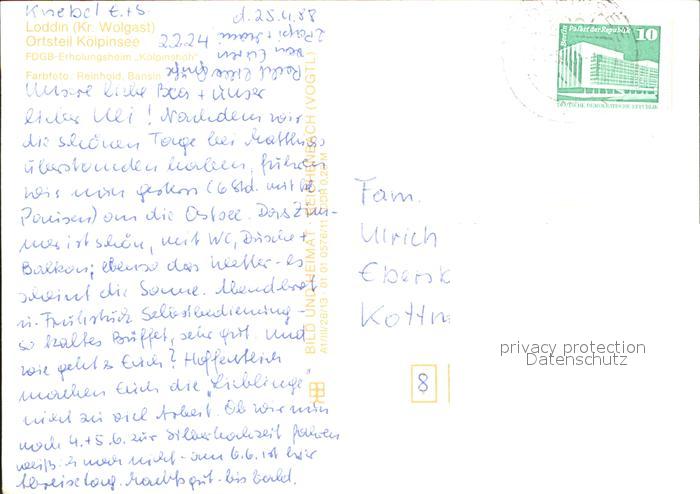 Knebel E.+S.
d. 25.4.88
Loddin (Kr. Wolgast)
Ortsteil Kölpinsee
2224
FDGB-Erholungsheim „Kölpinshöh"
Farbfoto: Reinhold, Bansin
Recht liebe Grüße
von Euren
Unsere liebe Bea + unser
lieber Uli! Nachdem wir
die schönen Tage bei Matthias
überstanden haben, fuhren
wir nun gestern (6 Std. mit
Pausen) an die Ostsee. Das Zim-
mer ist schön, mit WC, Dusche +
Balkon; ebenso das Wetter - es
scheint die Sonne. Abendbrot
u. Frühstück Selbstbedienung -
so kaltes Büffet, sehr gut. Und
wie geht's Euch? Hoffentlich
machen Euch die „Lieblinge"
nicht zu viel Arbeit. Ob wir nun
noch 4.+5.6. zur Silberhochzeit fahren
weiß ich noch nicht - am 6.6. ist hier
Abreisetag. Macht's gut - bis bald.
BILD UND HEIMAT REICHENBACH (VOGTL)
A1/III/26/13 01 01 0576/11
Berlin Palast der Republik
10
DEUTSCHE DEMOKRATISCHE REPUBLIK
Fam.
Ulrich
Ebersk
Kottm
privacy protection
Datenschutz
8